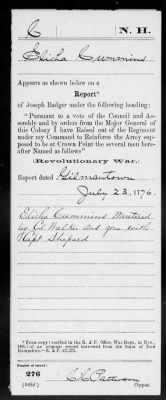 C N. H.
Elisha Cummins
Appears as shown below on a
Report*
of Joseph Badger under the following heading:
"Pursuant to a vote of the Council and As-
sembly and by orders from the Major General of
this Colony I have Raised out of the Regiment
under my Command to Reinforce the Army sup-
posed to be at Crown Point the several men here-
after Named as follows"
(Revolutionary War.)
Report dated Gilmantown
July 23, 1776.
Elisha Cummins Mustered
by Col Walker and gon with
Capt Shepard
* From copy (verified in the R. & P. Office, War Dep., in
of an original record borrowed from the State of New
Hampshire.) R. & P.
Number of record:
276
Copyist.